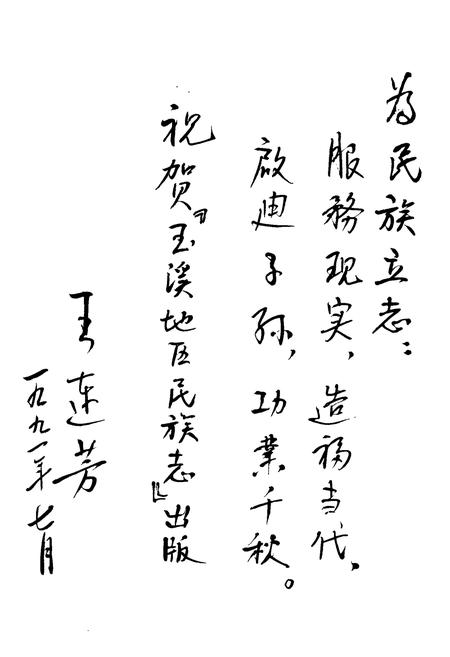 为民族立志：
服務现实，造福当代，
啟迪子孙，功業千秋。
祝贺『玉溪地区民族志』出版
王连芳
一九九一年七月